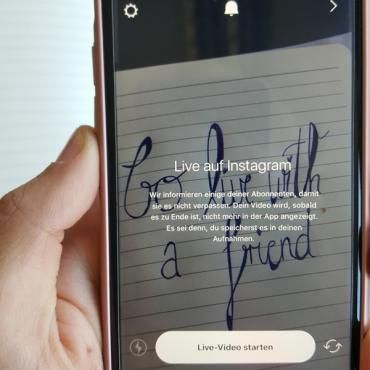 Go live with
a friend
Live auf Instagram
Wir informieren einige deiner Abonnenten, damit
sie es nicht verpassen. Dein Video wird, sobald
es zu Ende ist, nicht mehr in der App angezeigt.
Es sei denn, du speicherst es in deinen
Aufnahmen.
Live-Video starten